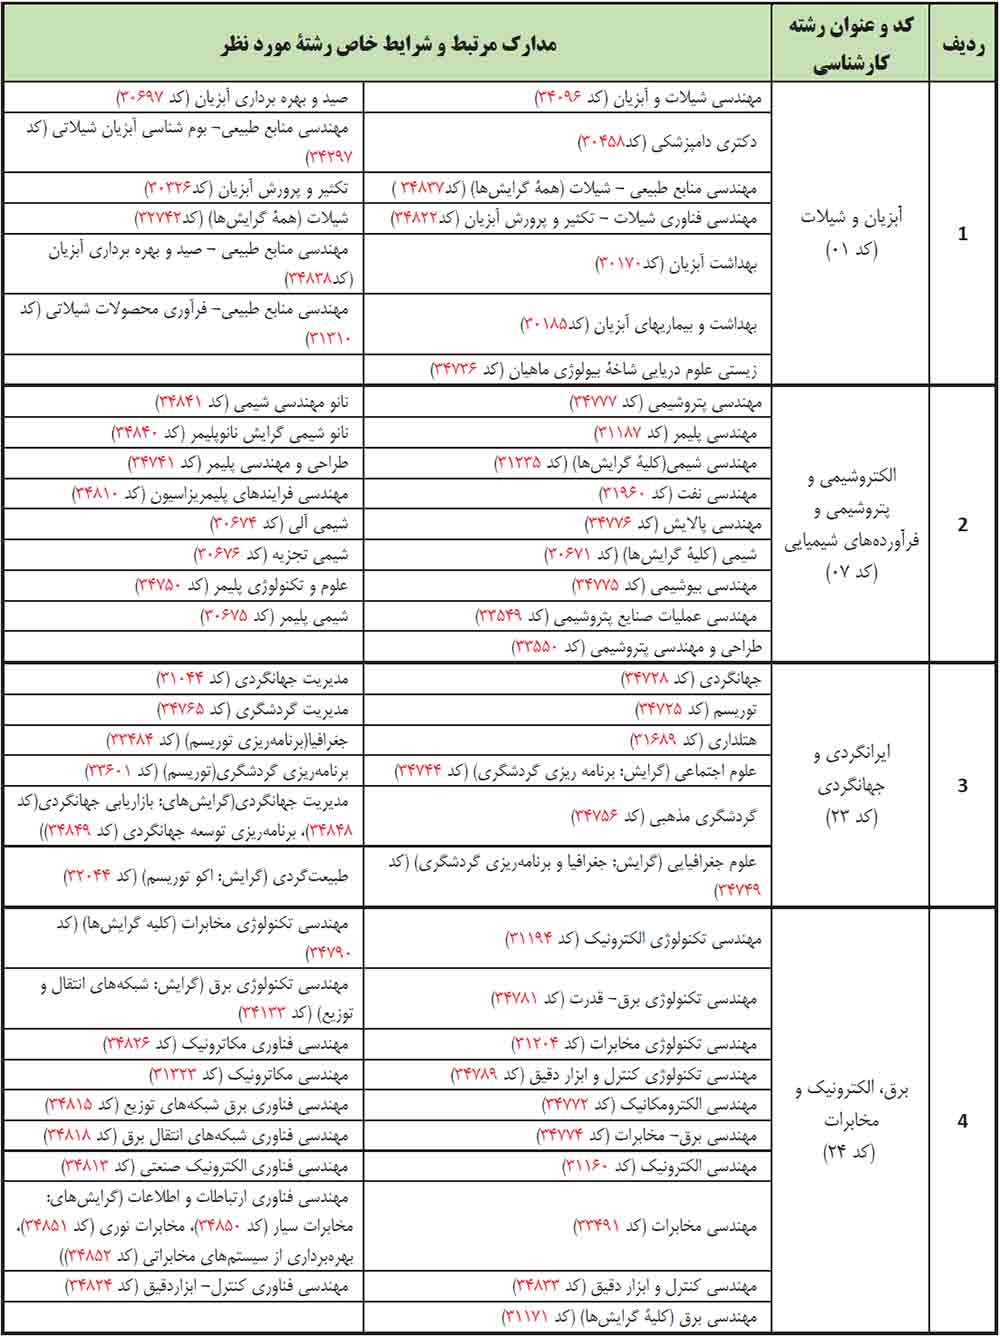 ردیف
کد و عنوان رشته
کارشناسی
مدارک مرتبط و شرایط خاص رشتهٔ مورد نظر
1
آبزیان و شیلات
(کد ۰۱)
مهندسی شیلات و آبزیان (کد ۳۴۰۹۶)
صید و بهره برداری آبزیان (کد ۳۰۶۹۷)
دکتری دامپزشکی (کد۳۰۴۵۸)
مهندسی منابع طبیعی- بوم شناسی آبزیان شیلاتی (کد
۳۴۲۹۷)
مهندسی منابع طبیعی - شیلات (همهٔ گرایش‌ها) (کد۳۴۸۳۷ )
تکثیر و پرورش آبزیان (کد۳۰۳۲۶)
مهندسی فناوری شیلات - تکثیر و پرورش آبزیان (کد۳۴۸۲۲)
شیلات (همهٔ گرایش‌ها) (کد۳۲۷۴۲)
بهداشت آبزیان (کد۳۰۱۷۰)
مهندسی منابع طبیعی - صید و بهره برداری آبزیان
(کد۳۴۸۳۸)
بهداشت و بیماریهای آبزیان (کد۳۰۱۸۵)
مهندسی منابع طبیعی- فرآوری محصولات شیلاتی (کد
۳۱۳۱۰)
زیستی علوم دریایی شاخهٔ بیولوژی ماهیان (کد ۳۴۷۳۶)
2
الکتروشیمی و
پتروشیمی و
فرآورده‌های شیمیایی
(کد ۰۷)
مهندسی پتروشیمی (کد ۳۴۷۷۷)
نانو مهندسی شیمی (کد ۳۴۸۴۱)
مهندسی پلیمر (کد ۳۱۱۸۷)
نانو شیمی گرایش نانوپلیمر (کد ۳۴۸۴۰)
مهندسی شیمی(کلیهٔ گرایش‌ها) (کد ۳۱۲۳۵)
طراحی و مهندسی پلیمر (کد ۳۴۷۴۱)
مهندسی نفت (کد ۳۱۹۶۰)
مهندسی فرایندهای پلیمریزاسیون (کد ۳۴۸۱۰)
مهندسی پالایش (کد ۳۴۷۷۶)
شیمی آلی (کد ۳۰۶۷۴)
شیمی (کلیهٔ گرایش‌ها) (کد ۳۰۶۷۱)
شیمی تجزیه (کد ۳۰۶۷۶)
مهندسی بیوشیمی (کد ۳۴۷۷۵)
علوم و تکنولوژی پلیمر (کد ۳۴۷۵۰)
مهندسی عملیات صنایع پتروشیمی (کد ۳۳۵۴۹)
شیمی پلیمر (کد ۳۰۶۷۵)
طراحی و مهندسی پتروشیمی (کد ۳۳۵۵۰)
3
ایرانگردی و
جهانگردی
(کد ۲۳)
جهانگردی (کد ۳۴۷۲۸)
مدیریت جهانگردی (کد ۳۱۰۴۴)
توریسم (کد ۳۴۷۲۵)
مدیریت گردشگری (کد ۳۴۷۶۵)
هتلداری (کد ۳۱۶۸۹)
جغرافیا(برنامه‌ریزی توریسم) (کد ۳۳۴۸۴)
علوم اجتماعی (گرایش: برنامه ریزی گردشگری) (کد ۳۴۷۴۴)
برنامه‌ریزی گردشگری(توریسم) (کد ۳۳۶۰۱)
گردشگری مذهبی (کد ۳۴۷۵۶)
مدیریت جهانگردی(گرایش‌های: بازاریابی جهانگردی(کد
۳۴۸۴۸)، برنامه‌ریزی توسعه جهانگردی (کد ۳۴۸۴۹))
علوم جغرافیایی (گرایش: جغرافیا و برنامه‌ریزی گردشگری) (کد
۳۴۷۴۹)
طبیعت‌گردی (گرایش: اکو توریسم) (کد ۳۲۰۴۴)
4
برق، الکترونیک و
مخابرات
(کد ۲۴)
مهندسی تکنولوژی الکترونیک (کد ۳۱۱۹۴)
مهندسی تکنولوژی مخابرات (کلیه گرایش‌ها) (کد
۳۴۷۹۰)
مهندسی تکنولوژی برق- قدرت (کد ۳۴۷۸۱)
مهندسی تکنولوژی برق (گرایش: شبکه‌های انتقال و
توزیع) (کد ۳۴۱۳۳)
مهندسی تکنولوژی مخابرات (کد ۳۱۲۰۴)
مهندسی فناوری مکاترونیک (کد ۳۴۸۲۶)
مهندسی تکنولوژی کنترل و ابزار دقیق (کد ۳۴۷۸۹)
مهندسی مکاترونیک (کد ۳۱۳۲۳)
مهندسی الکترومکانیک (کد ۳۴۷۷۲)
مهندسی فناوری برق شبکه‌های توزیع (کد ۳۴۸۱۵)
مهندسی برق- مخابرات (کد ۳۴۷۷۴)
مهندسی فناوری شبکه‌های انتقال برق (کد ۳۴۸۱۸)
مهندسی الکترونیک (کد ۳۱۱۶۰)
مهندسی فناوری الکترونیک صنعتی (کد ۳۴۸۱۳)
مهندسی مخابرات (کد ۳۳۴۹۱)
مهندسی فناوری ارتباطات و اطلاعات (گرایش‌های:
مخابرات سیار (کد ۳۴۸۵۰)، مخابرات نوری (کد ۳۴۸۵۱)،
بهره‌برداری از سیستم‌های مخابراتی (کد ۳۴۸۵۲))
مهندسی کنترل و ابزار دقیق (کد ۳۴۸۳۳)
مهندسی فناوری کنترل- ابزاردقیق (کد ۳۴۸۲۴)
مهندسی برق (کلیهٔ گرایش‌ها) (کد ۳۱۱۷۱)